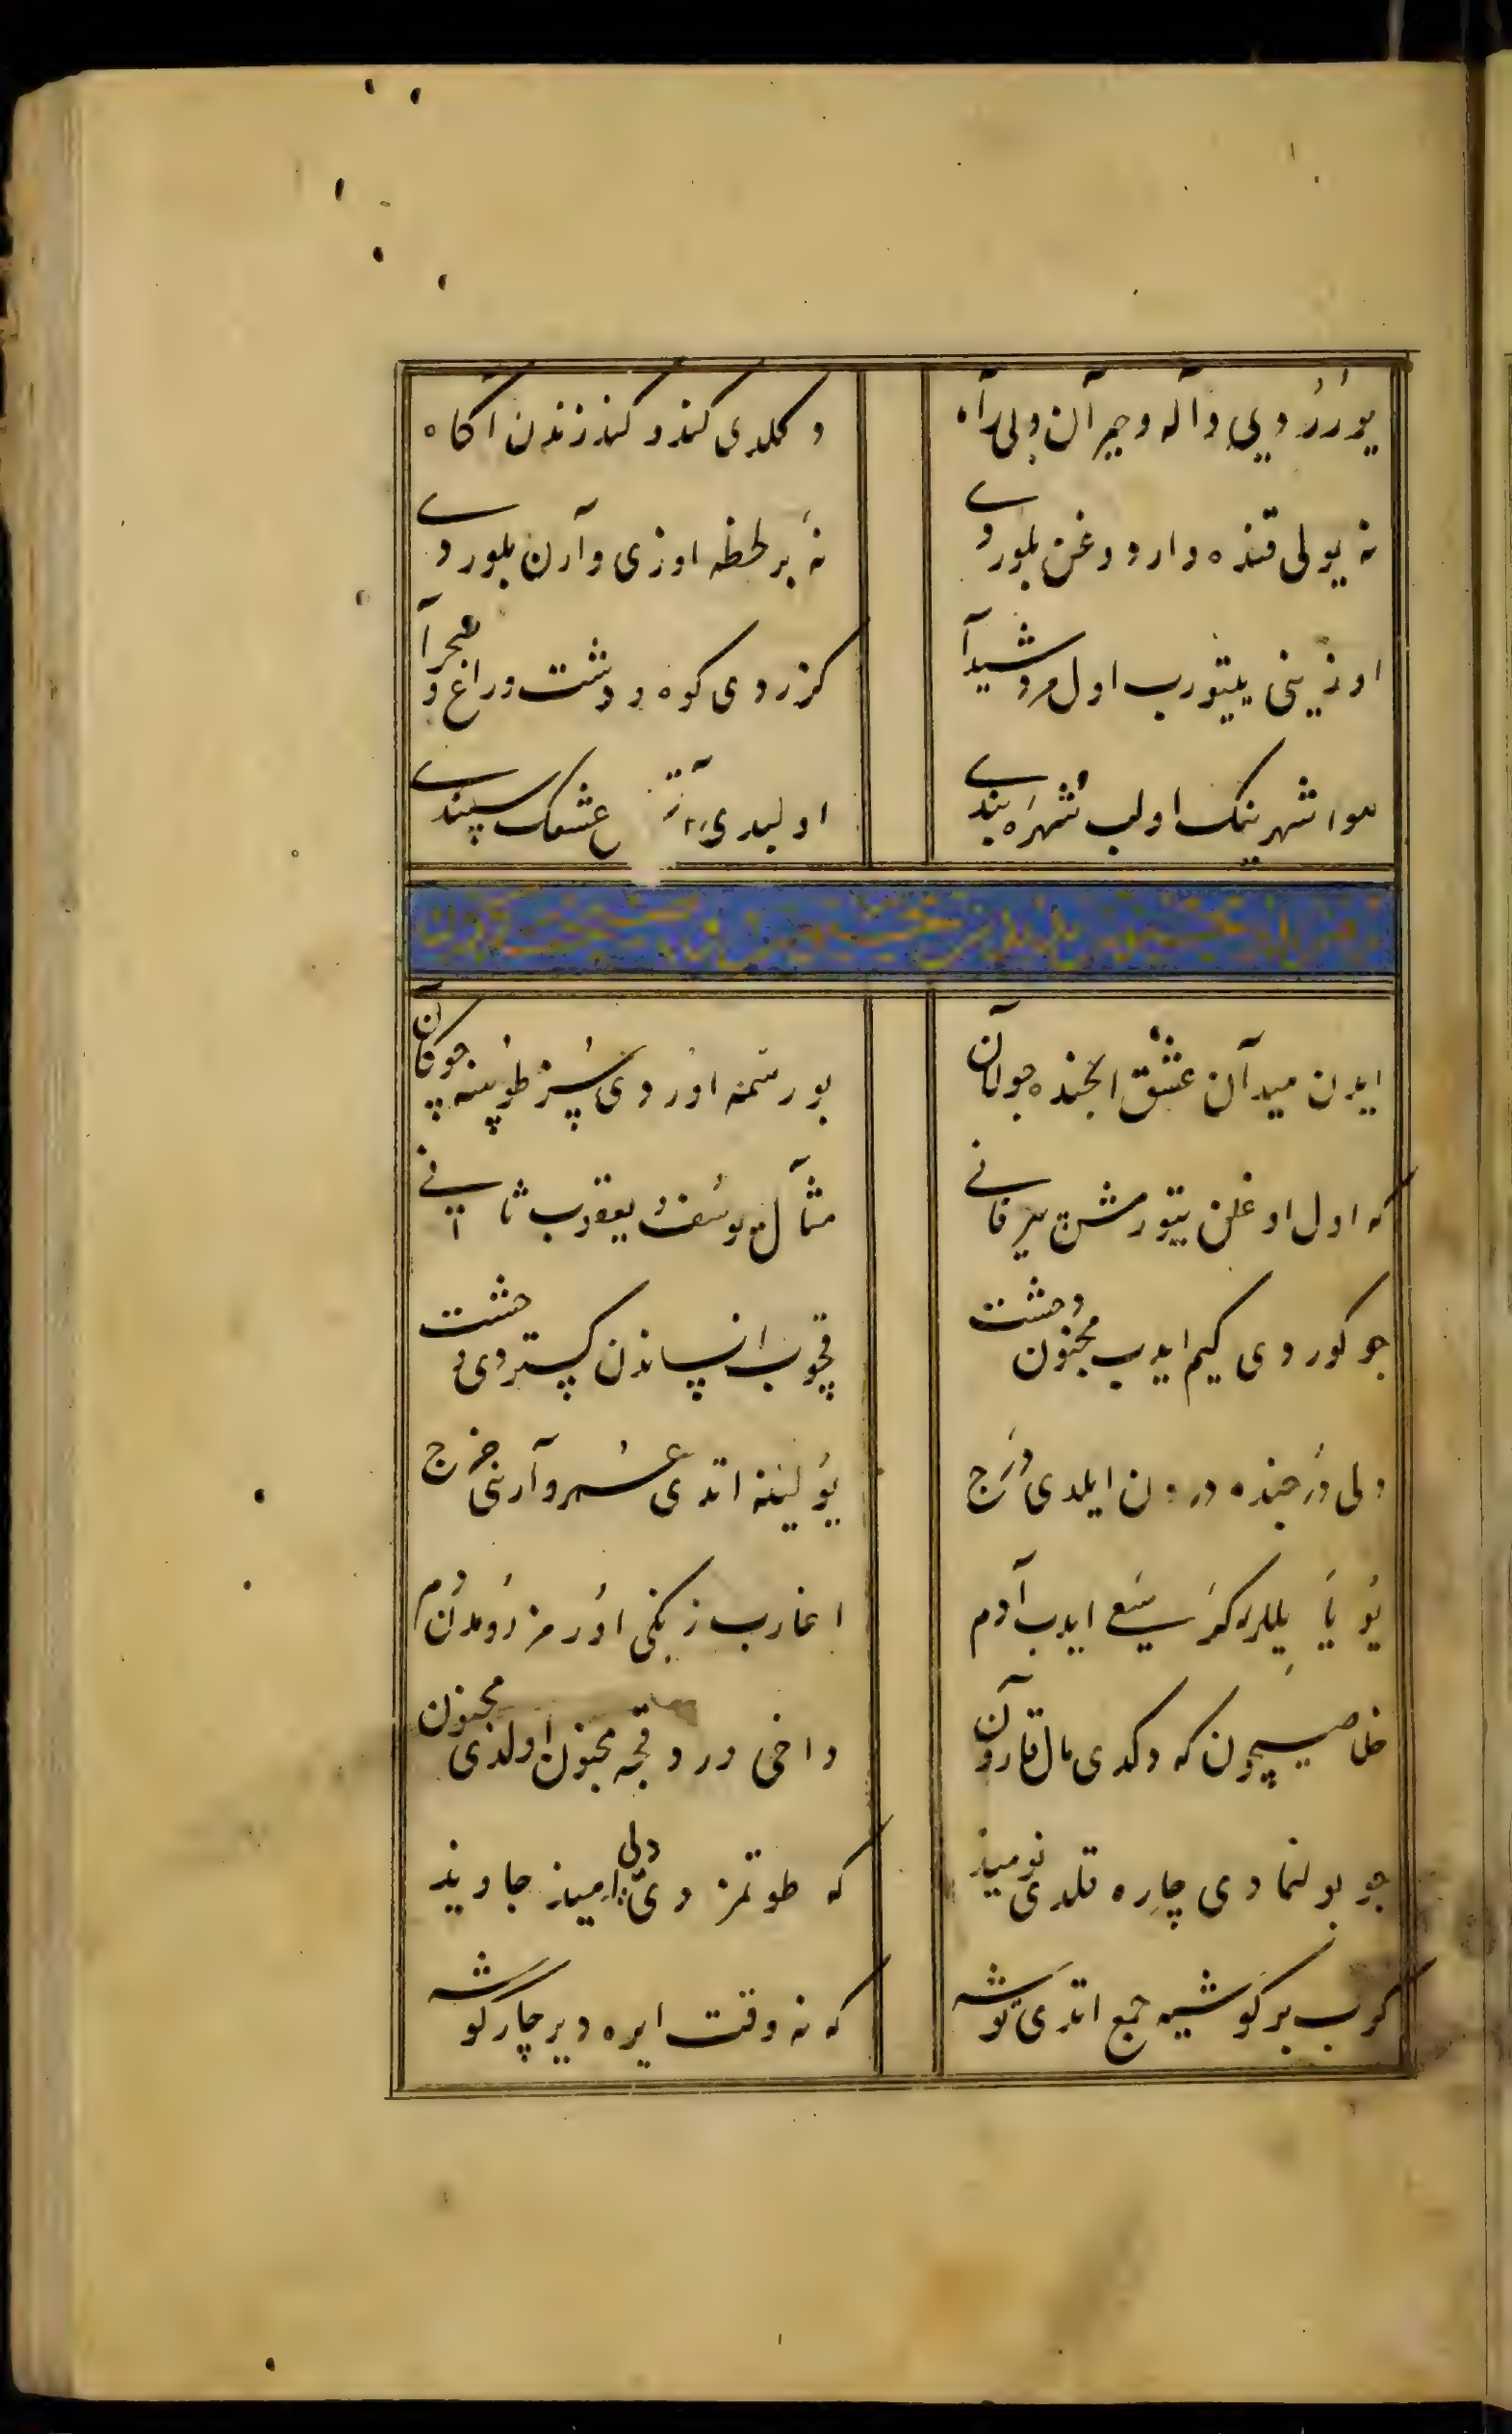 یورردی واله و حیران و بی راه
دکلدی کندو کندزندن آکاه
نه یولی قنده واردوغن بلوردی
نه بر لحظه اوزی وارن بلوردی
اوزینی یتورب اول مرد شیدا
کزردی کوه و دشت و راغ و صحرا
هوا شهرینک اولب شهره بندی
اولیدی عشقک سپندی
ایدن میدان عشق ایچنده جولان
بو رسمنه اوردی سز طوپنه چوکان
که اول اوغلن یتورمش پیر فانی
مثال یوسف و یعقوب ثانی
چو کوردی کیم ایدب مجنون وحشت
قچوب انساندن کستردی وحشت
ولی درجنده درون ایلدی درج
یولینه اتدی عمر و وارنی خرج
بو یا یللرله کر سعی ایدب آدم
اغارب زنکی اورمز رومدن دم
خلاصیچون که دکدی مال قارون
داخی وردقجه مجنون اولدی مجنون
چو بولنمادی چاره قلدی نومید
که طوتمزدی دلی امید جاوید
کرب بر کوشیه جمع اتدی توشه
که نه وقت ایره دیر چارکوشه